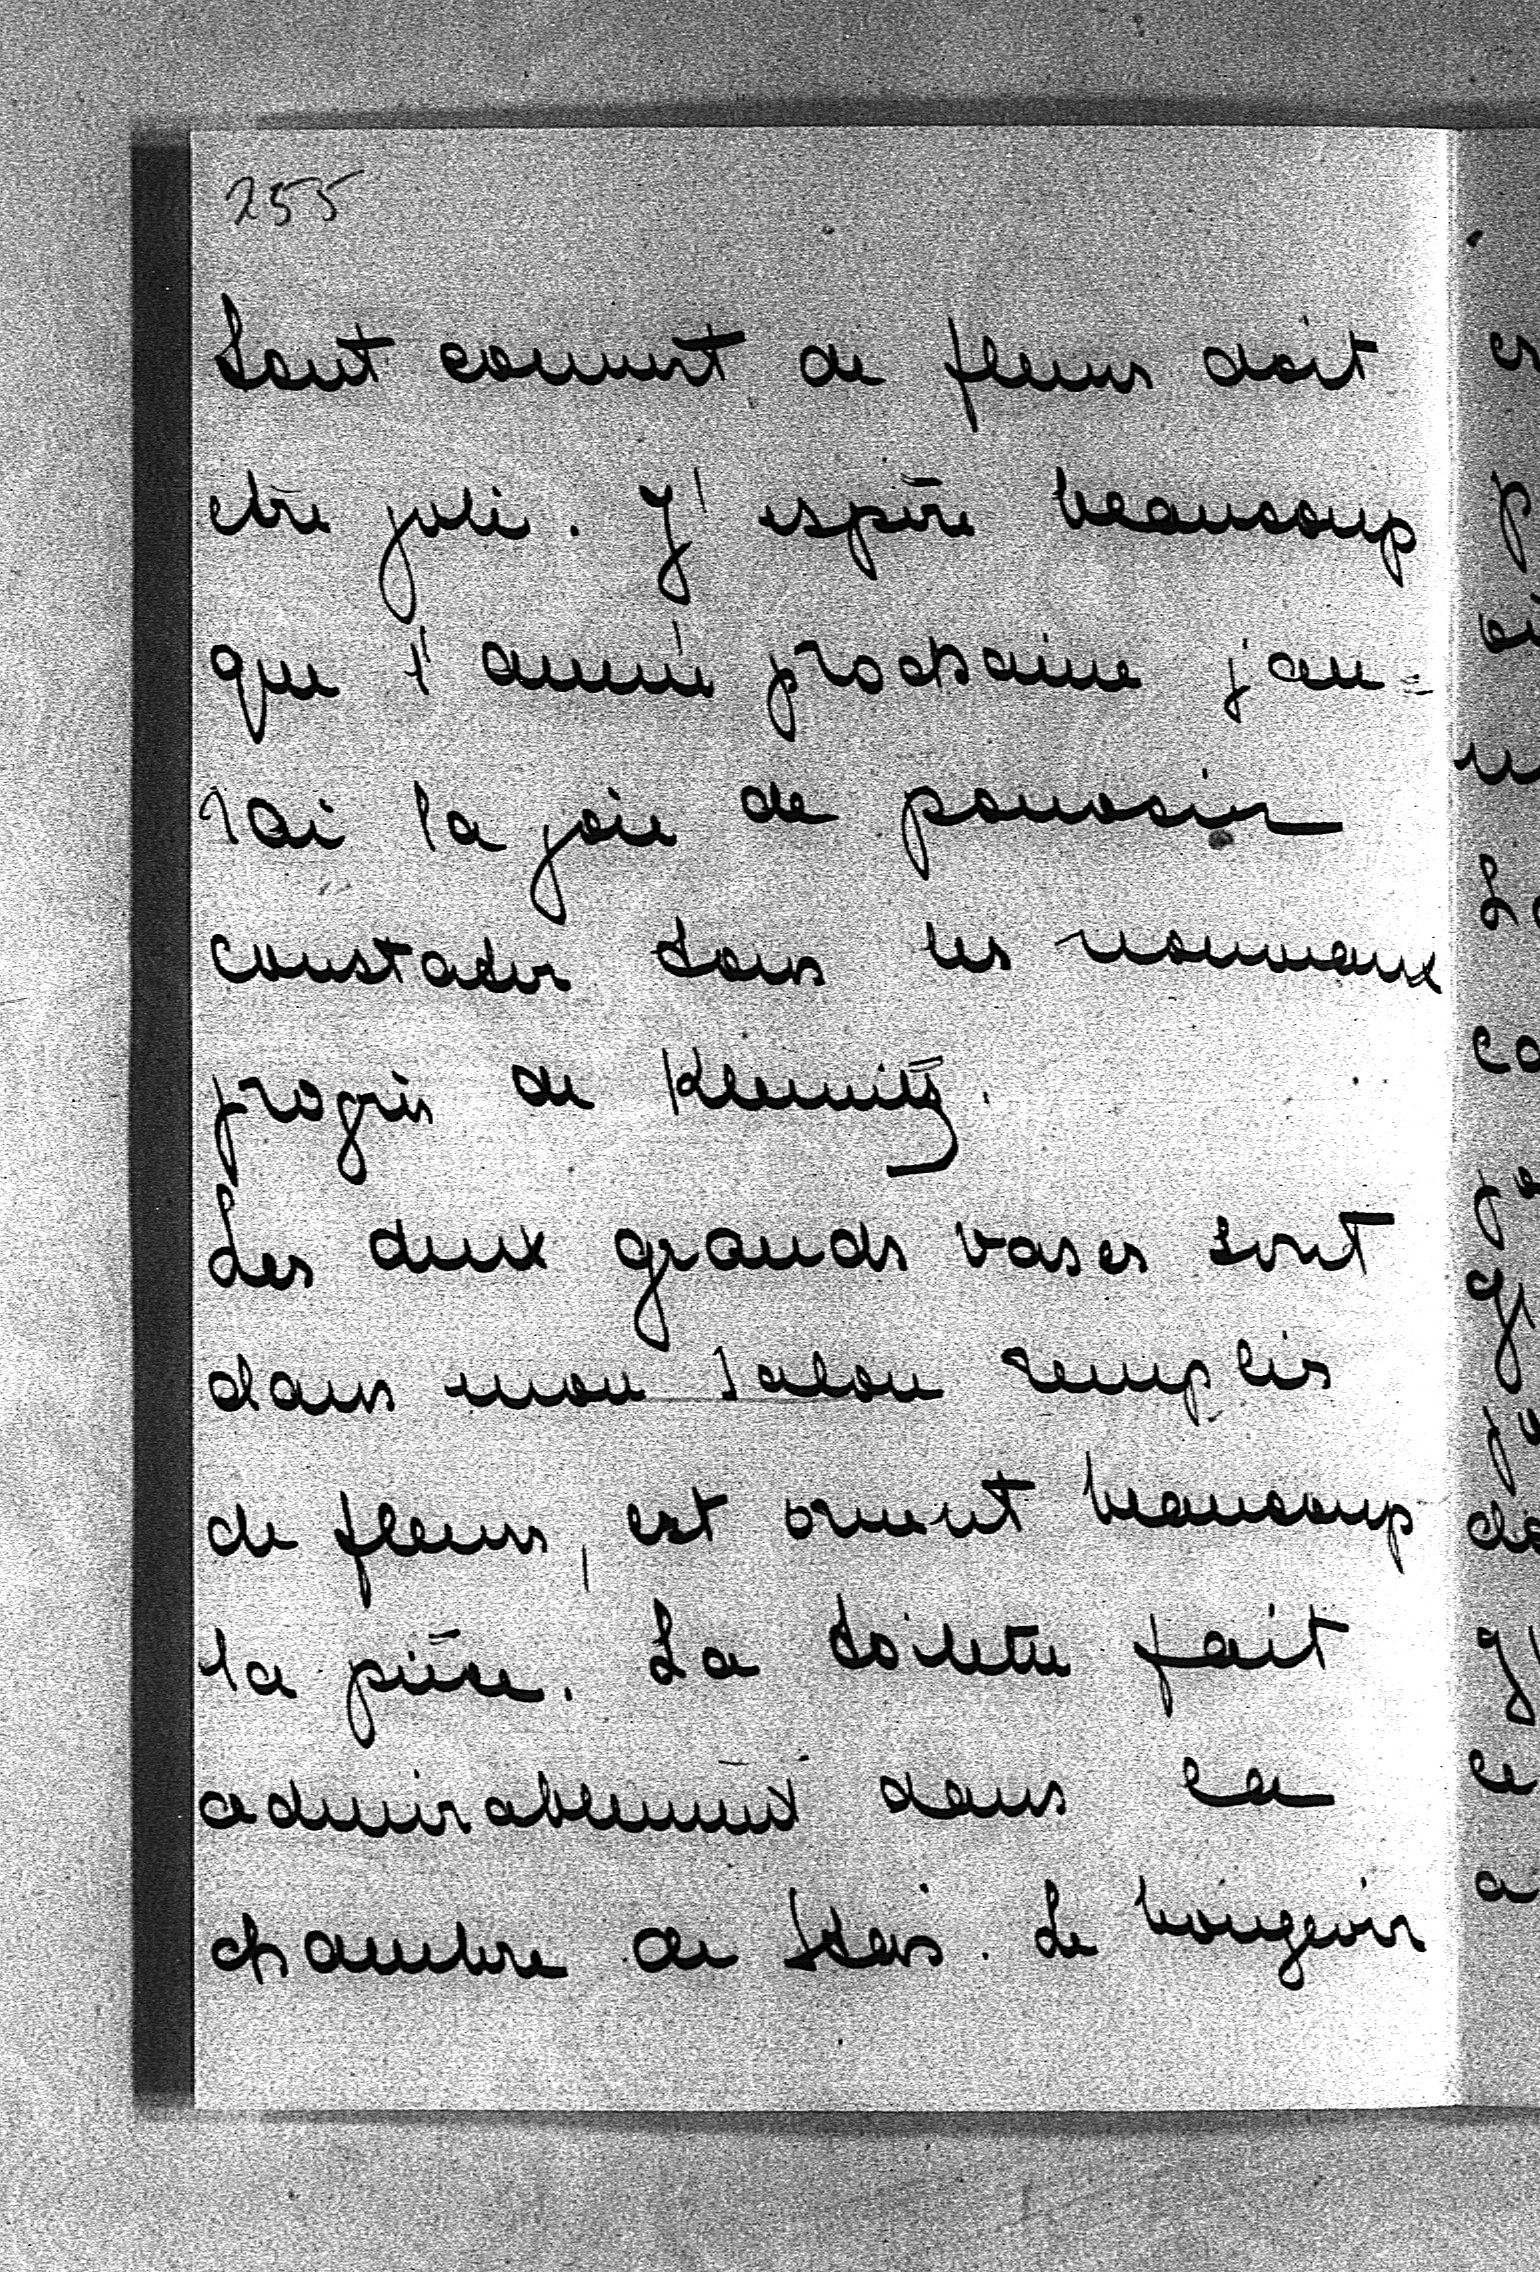 255
tout couvert de fleurs doit
etre joli. J'espère beaucoup
que l'année prochaine j'au=
rai la joie de pouvoir
constater tous les nouveaux
progrès de Klemitz.
Les deux grands vases sont
dans mon salon remplis
de fleurs, est ornent beaucoup
la pièce. La toilette fait
admirablement dans la
chambre de. Le bougeoir